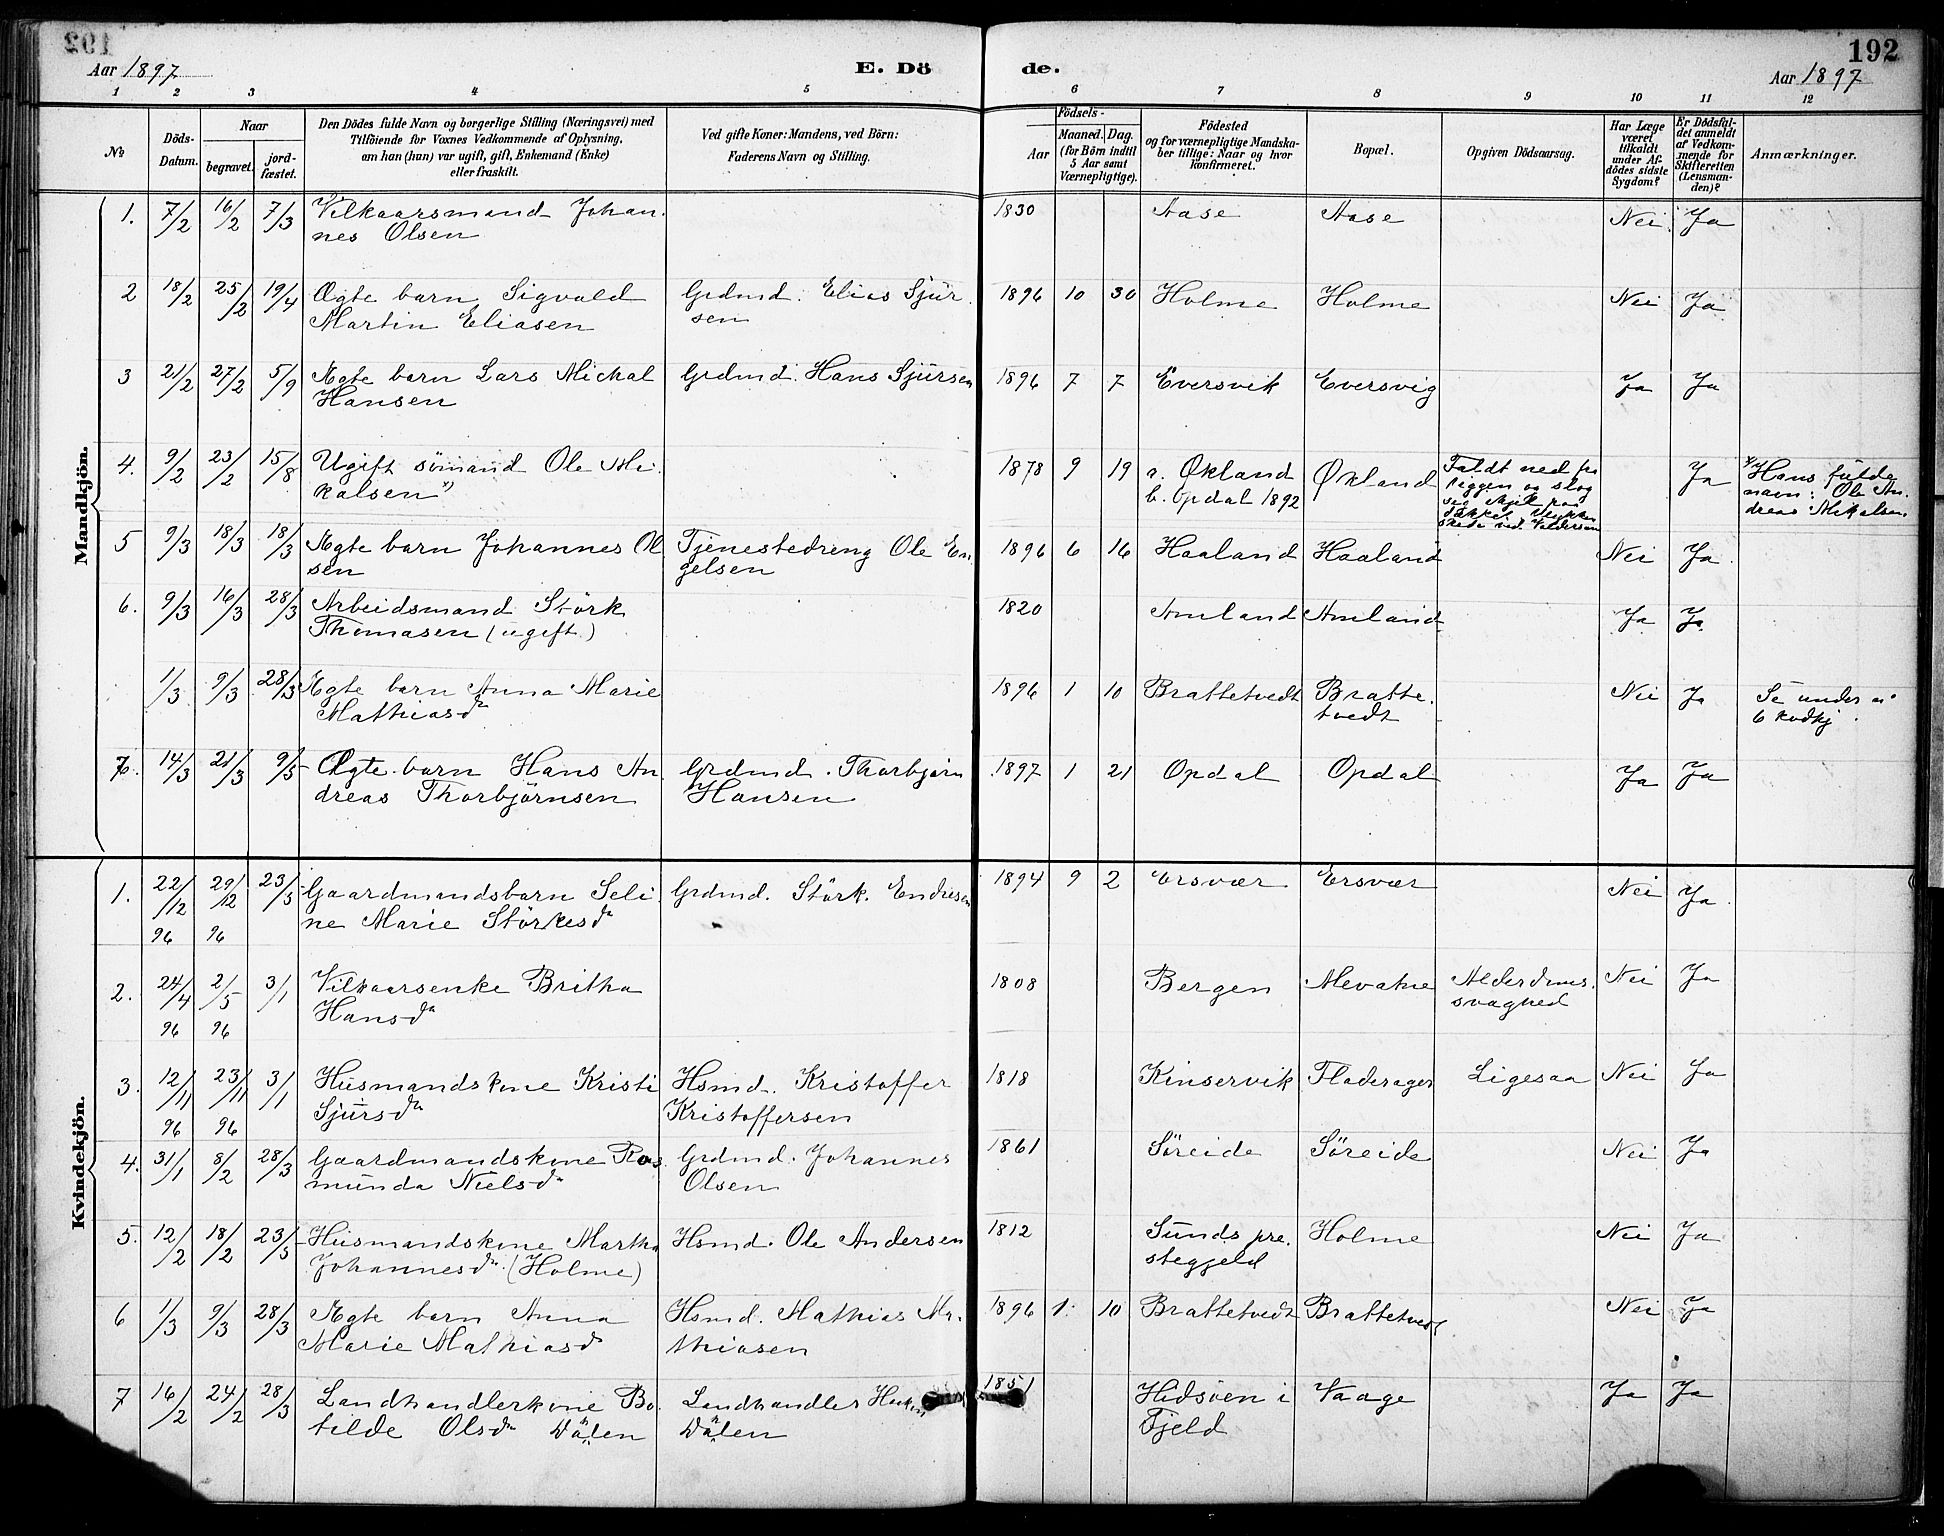 192
Aar 1897
E. Dö
de.
Aar 1897
1 2 3 4 5 6 7 8 9 10 11 12
No
Döds-Datum.
Naar
begravet.
jord-fæstet.
Den Dödes fulde Navn og borgerlige Stilling (Næringsvei) med
Tilföiende for Voxnes Vedkommende af Oplysning,
om han (hun) var ugift, gift, Enkemand (Enke)
eller fraskilt.
Ved gifte Koner: Mandens, ved Börn:
Faderens Navn og Stilling.
Födsels-
Aar
Maaned. Dag.
(for Börn indtil
5 Aar samt
Værnepligtige).
Födested
og for værnepligtige Mandska-
ber tillige: Naar og hvor
konfirmeret.
Bopæl.
Opgiven Dödsaarsag.
Har Læge
været
tilkaldt
under Af-
dödes sidste
Sygdom?
Er Dödsfal-
det anmeldt
af Vedkom-
mende for
Skifteretten
(Lensman-
den)?
Anmærkninger.
Mandkjön.
1. 7/2 16/2 7/3 Vilkaarsmand Johan- 1830 Aase Aase Nei Ja
nes Olsen
2 18/2 25/2 19/4 Ægte barn Sigvald Grdmd. Elias Sjur- 1896 10 30 Holme Holme Nei Ja
Martin Eliasen sen
3 21/2 27/2 5/9 Ægte barn Lars Mickal Grdmd. Hans Sjursen 1896 7 7 Eversvik Eversvig Ja Ja
Hansen
4. 9/2 23/2 15/8 Ugift sömand Ole Mi- 1878 9 19 a. Økland Økland Faldt ned fra Ja x) Hans fulde
kalsen x) b. Opdal 1892 riggen og slog navn: Ole An-
dreas Mikalsen
5 9/3 18/3 18/3 Ægte barn Johannes Ol Tjenestedreng Ole En- 1896 6 16 Haaland Haaland Nei Ja
sen gelsen
6. 9/3 16/3 28/3 Arbeidsmand Störk 1820 Amland Amland Ja Ja
Thomasen (ugift)
1/3 9/3 28/3 Ægte barn Anna Marie 1896 1 10 Brattetvedt Bratte- Nei Ja Se under n
Mathiasdr tvedt 6 kvdkj.
7. 14/3 21/3 9/5 Ægte barn Hans An Grdmd. Thorbjørn 1897 1 21 Opdal Opdal Ja Ja
dreas Thorbjørnsen Hansen
Kvindekjön.
1. 22/12 29/12 23/5 Gaardmandsbarn Seli- Grdmd. Störk. Endresen 1894 9 2 Ersvær Ersvær Nei Ja
96 96 ne Marie Störkesdr
2. 24/4 2/5 3/1 Vilkaarsenke Britha 1808 Bergen Mevatne Alderdoms- Nei Ja
96 96 Hansdr svaghed
3. 12/11 23/11 3/1 Husmandskone Kristi Hsmd. Kristoffer 1818 Kinservik Fladerager Ligesaa Nei Ja
96 96 Sjursdr Kristoffersen
4. 31/1 8/2 28/3 Gaardmandskone Ras- Grdmd. Johannes 1861 Søreide Søreide Nei Ja
munda Nielsdr Olsen
5. 12/2 18/2 23/5 Husmandskone Martha Hsmd. Ole Andersen 1812 Sunds pre- Holme Nei Ja
Johannesdr (Holme) stegjeld
6 1/3 9/3 28/3 Ægte barn Anna Hsmd. Mathias Ma- 1896 1 10 Brattetvedt Brattetvedt Nei Ja
Marie Mathiasd thiasen
7 16/2 24/2 28/3 Landhandlerkone Bo- Landhandler 1851 Hidsöen i Vaage Ja Ja
tilde Olsdr Dälen Dälen Fjeld